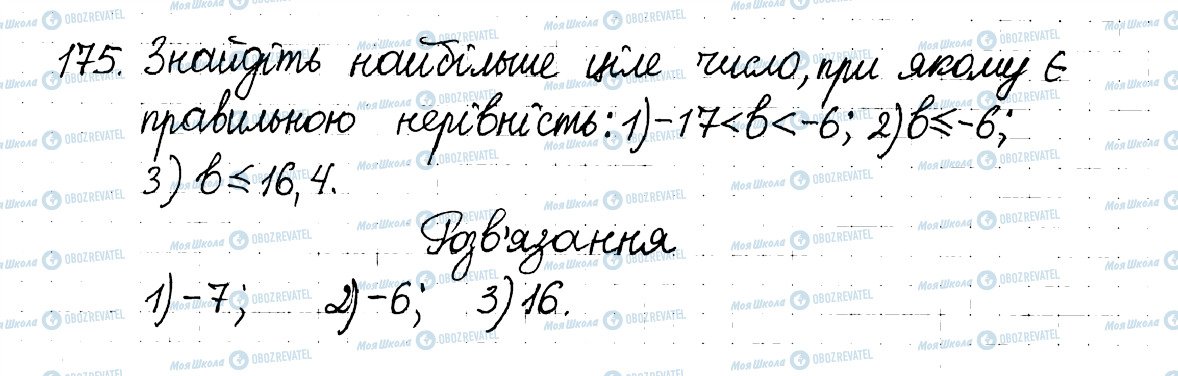 175. Знайдіть найбільше ціле число, при якому є
правильною нерівність: 1) -17 < b < -6; 2) b ≤ -6;
3) b ≤ 16,4.
Розв'язання
1) -7; 2) -6; 3) 16.